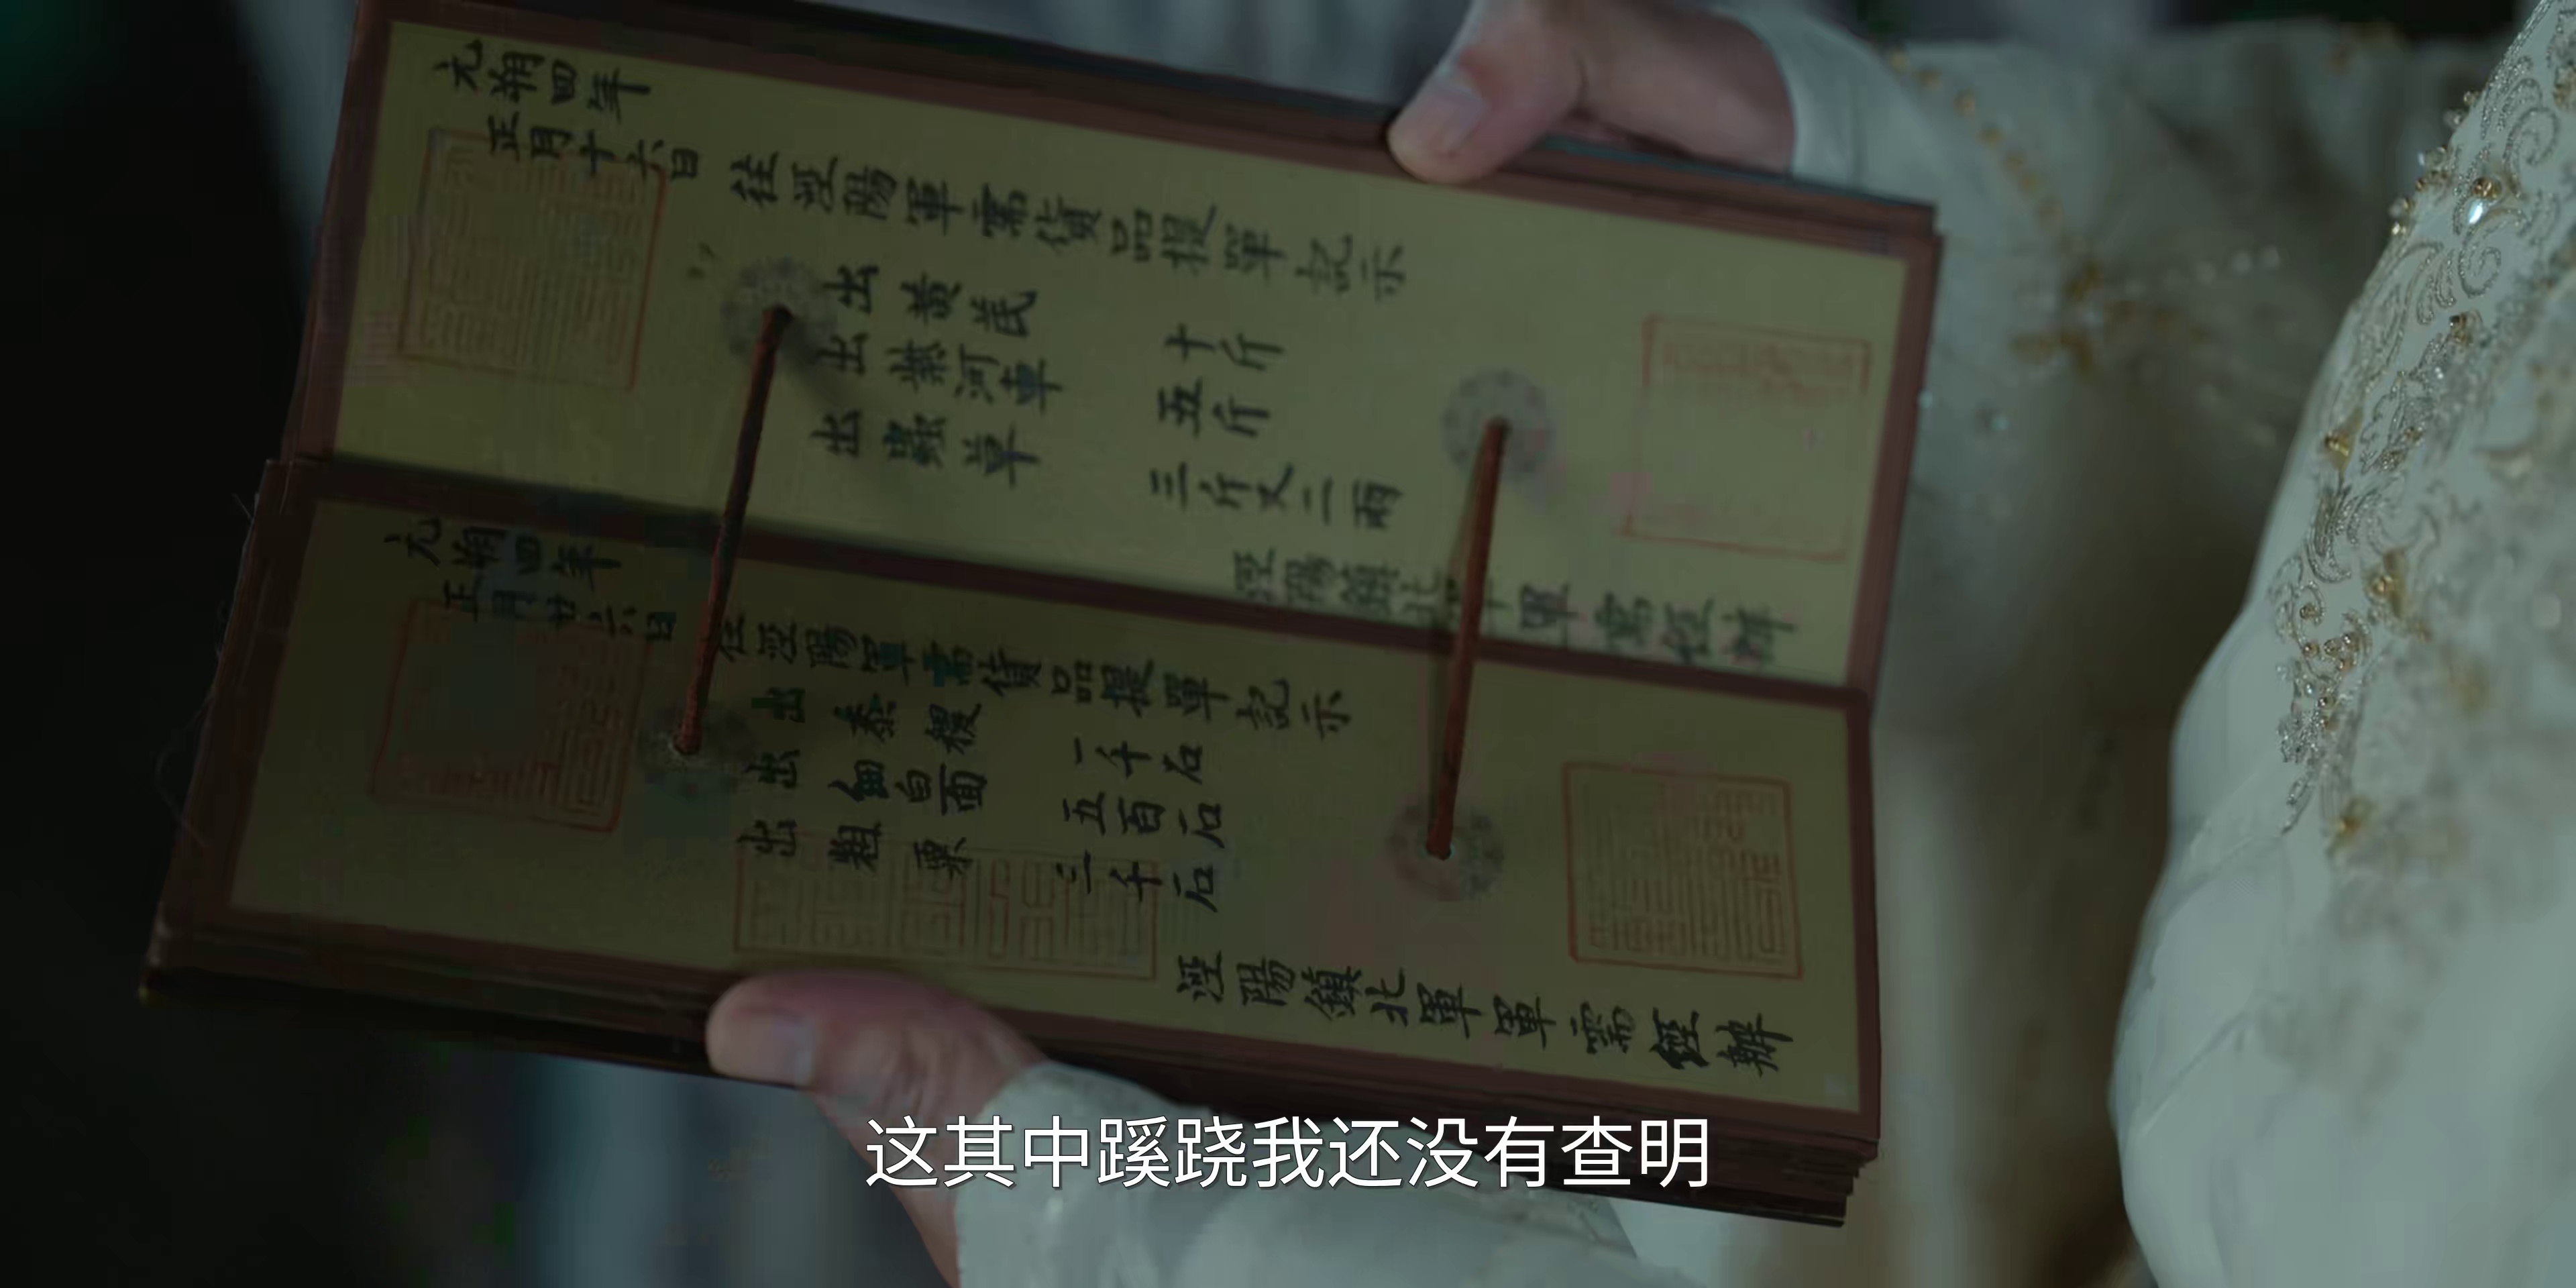 元朔四年
正月十六日
往涇陽軍需貨品提單記示
出黃芪 十斤
出紫河車 五斤
出蟲草 三斤又二兩
涇陽鎮北軍軍需經辦
元朔四年
正月廿六日
往涇陽軍需貨品提單記示
出黍稷 一千石
出細白面 五百石
出粗粟 三千石
涇陽鎮北軍軍需經辦
这其中蹊跷我还没有查明